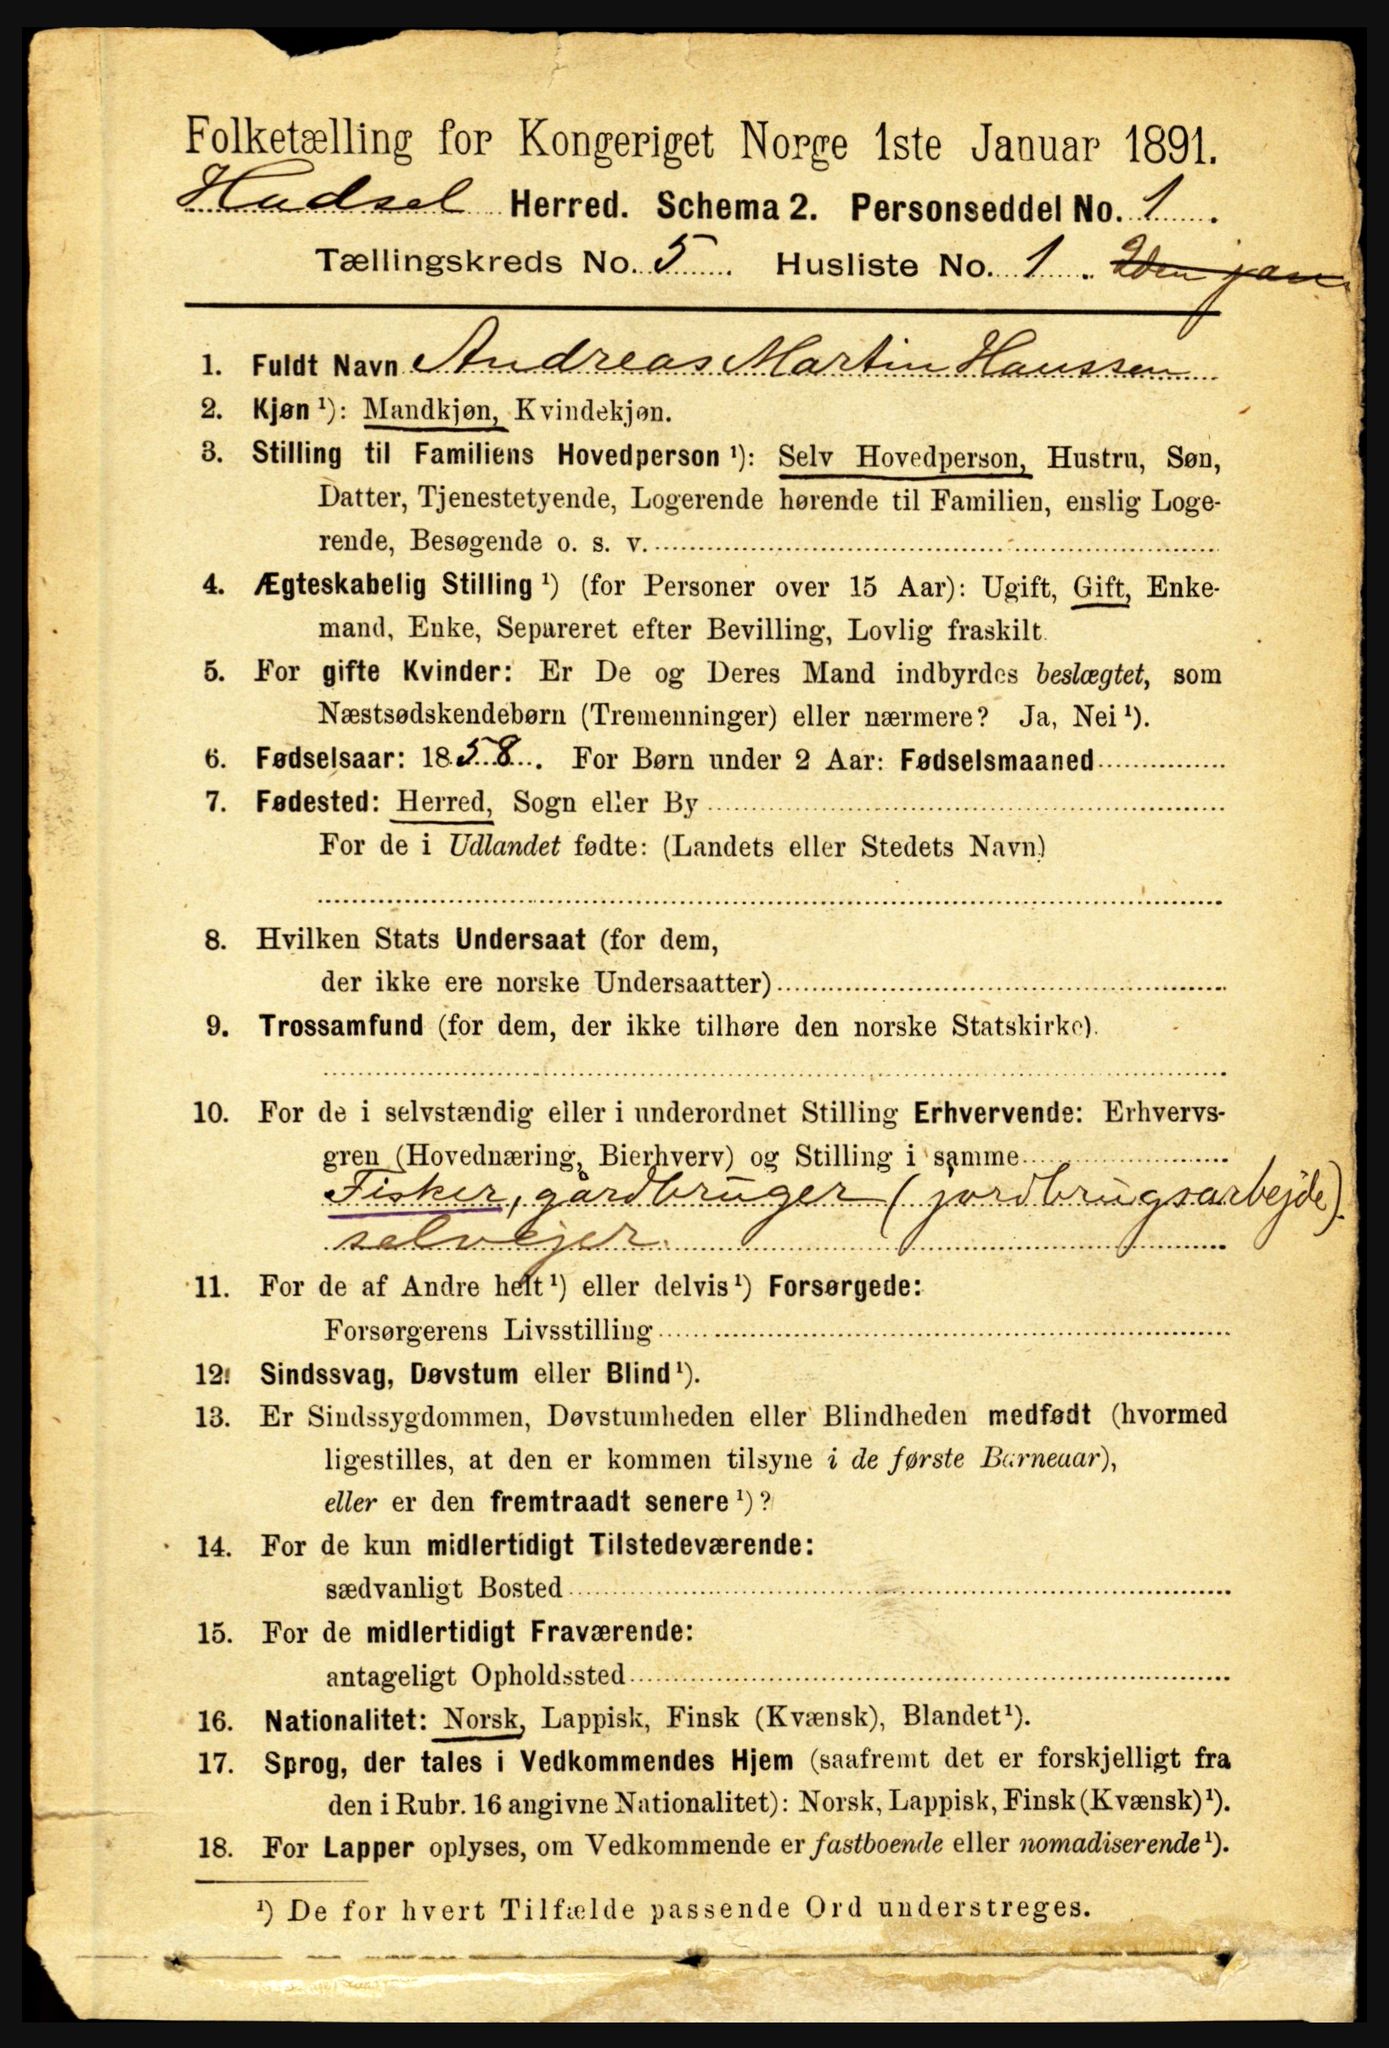 Folketælling for Kongeriget Norge 1ste Januar 1891.
Hadsel Herred. Schema 2. Personseddel No. 1.
Tællingskreds No. 5. Husliste No. 1. 2den jan.
1. Fuldt Navn Andreas Martin Hanssen
2. Kjøn ¹): Mandkjøn, Kvindekjøn.
3. Stilling til Familiens Hovedperson ¹): Selv Hovedperson, Hustru, Søn,
Datter, Tjenestetyende, Logerende hørende til Familien, enslig Loge-
rende, Besøgende o. s. v.
4. Ægteskabelig Stilling ¹) (for Personer over 15 Aar): Ugift, Gift, Enke-
mand, Enke, Separeret efter Bevilling, Lovlig fraskilt.
5. For gifte Kvinder: Er De og Deres Mand indbyrdes beslægtet, som
Næstsødskendebørn (Tremenninger) eller nærmere? Ja, Nei ¹).
6. Fødselsaar: 1858. For Børn under 2 Aar: Fødselsmaaned
7. Fødested: Herred, Sogn eller By
For de i Udlandet fødte: (Landets eller Stedets Navn)
8. Hvilken Stats Undersaat (for dem,
der ikke ere norske Undersaatter)
9. Trossamfund (for dem, der ikke tilhøre den norske Statskirke).
10. For de i selvstændig eller i underordnet Stilling Erhvervende: Erhvervs-
gren (Hovednæring, Bierhverv) og Stilling i samme
Fisker, gårdbruger (jordbrugsarbejde).
selvejer.
11. For de af Andre helt ¹) eller delvis ¹) Forsørgede:
Forsørgerens Livsstilling
12. Sindssvag, Døvstum eller Blind ¹).
13. Er Sindssygdommen, Døvstumheden eller Blindheden medfødt (hvormed
ligestilles, at den er kommen tilsyne i de første Barneaar),
eller er den fremtraadt senere ¹)?
14. For de kun midlertidigt Tilstedeværende:
sædvanligt Bosted
15. For de midlertidigt Fraværende:
antageligt Opholdssted
16. Nationalitet: Norsk, Lappisk, Finsk (Kvænsk), Blandet ¹).
17. Sprog, der tales i Vedkommendes Hjem (saafremt det er forskjelligt fra
den i Rubr. 16 angivne Nationalitet): Norsk, Lappisk, Finsk (Kvænsk) ¹).
18. For Lapper oplyses, om Vedkommende er fastboende eller nomadiserende ¹).
¹) De for hvert Tilfælde passende Ord understreges.